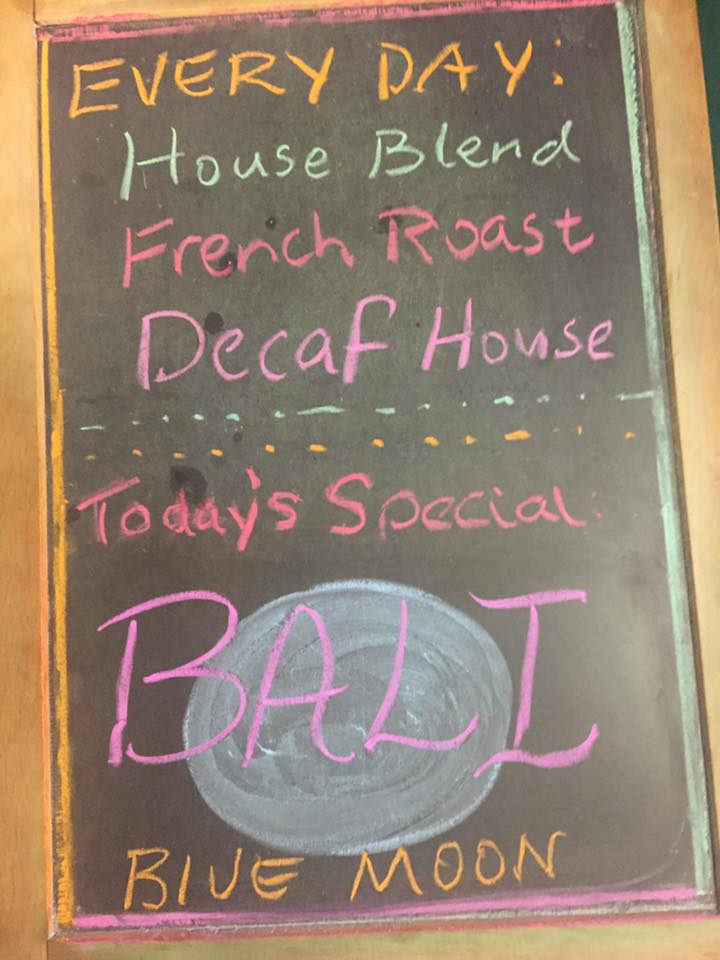 EVERY DAY:
House Blend
French Roast
Decaf House
Today's Special:
BALI
BLUE MOON